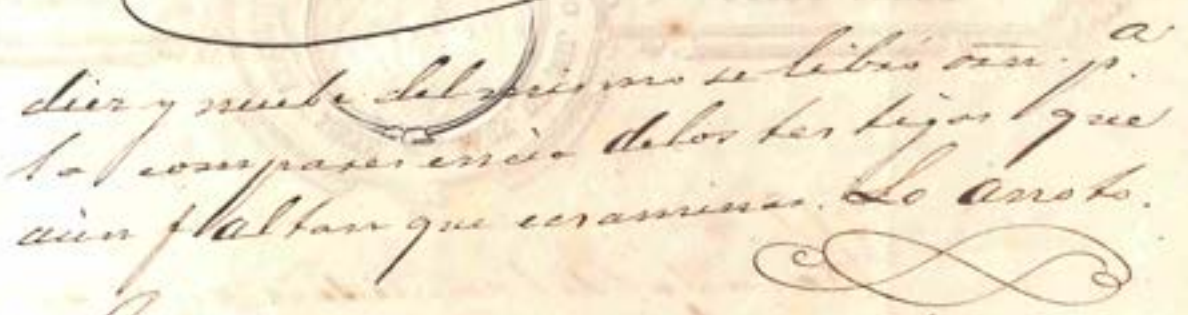 diez y nuebe del mismo se libró orn. p.ª
la comparesencia delos testigos que
aún faltan que ecsaminar. Lo anoto.